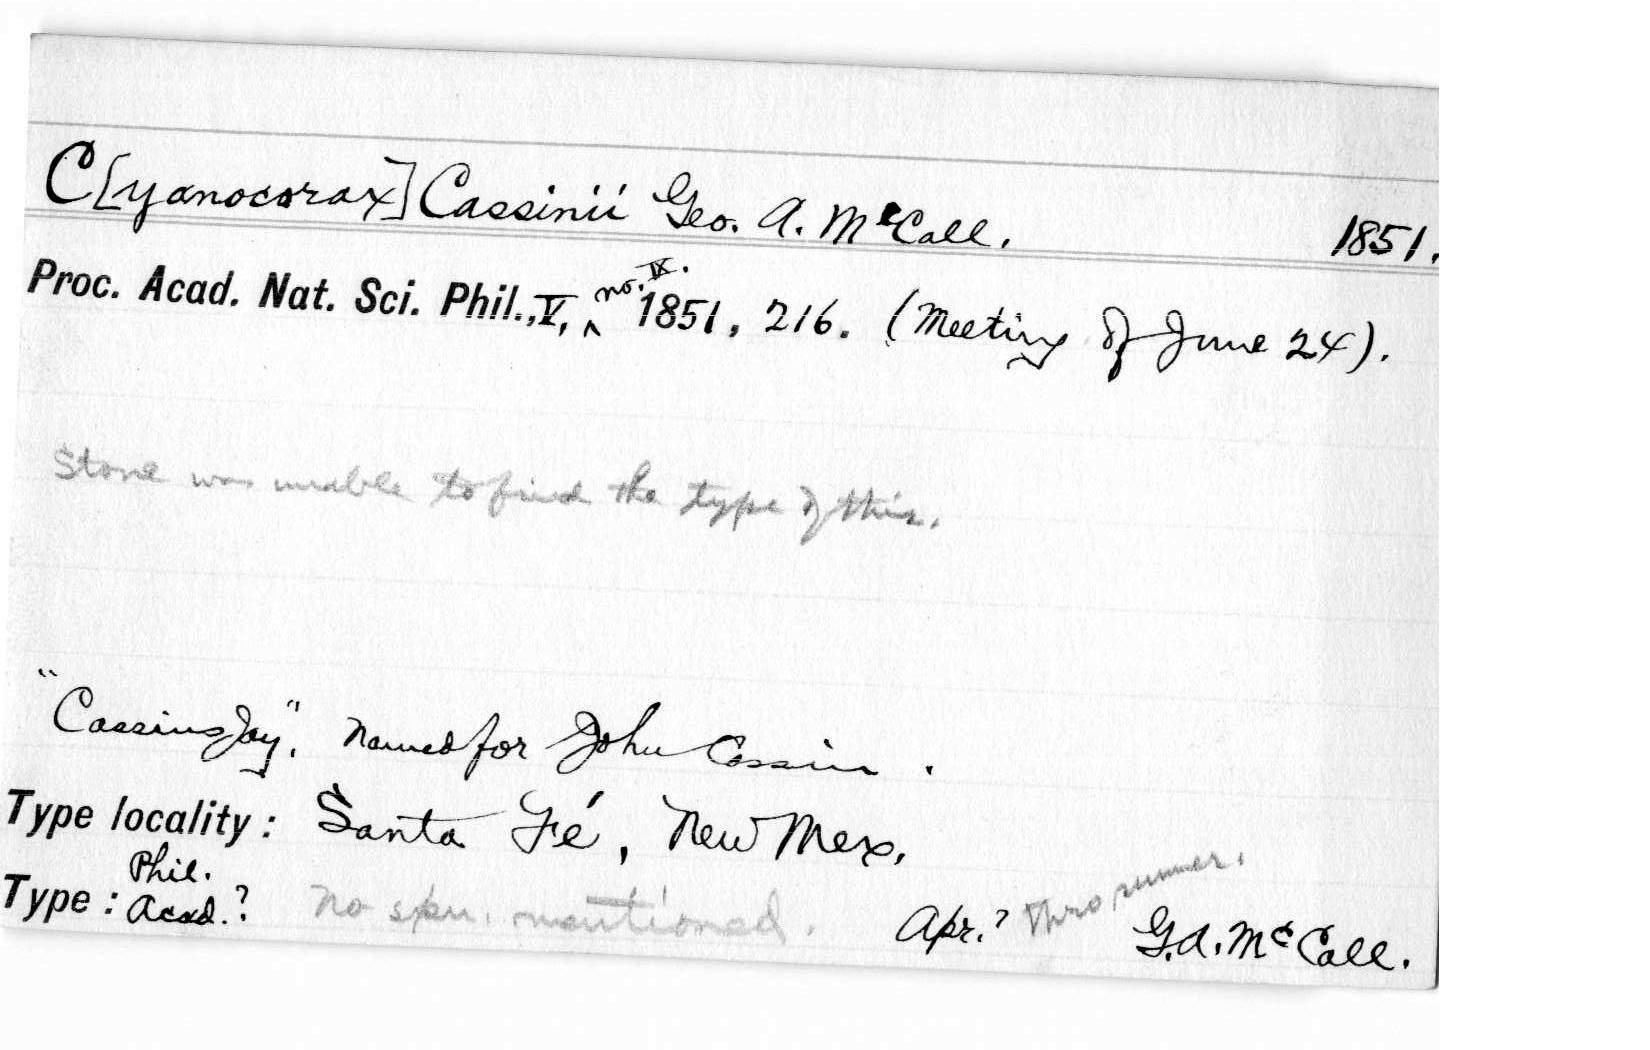 C[yanocorax] Cassinii Geo. A. McCall. 1851.
Proc. Acad. Nat. Sci. Phil., V, no. IX. 1851, 216. (Meeting of June 24).
Stone was unable to find the type of this.
"Cassins Jay". Named for John Cassin.
Type locality: Santa Fé, New Mex.
Type: Phil. Acad.? No spm. mentioned. Apr.? Thro summer. G. A. McCall.